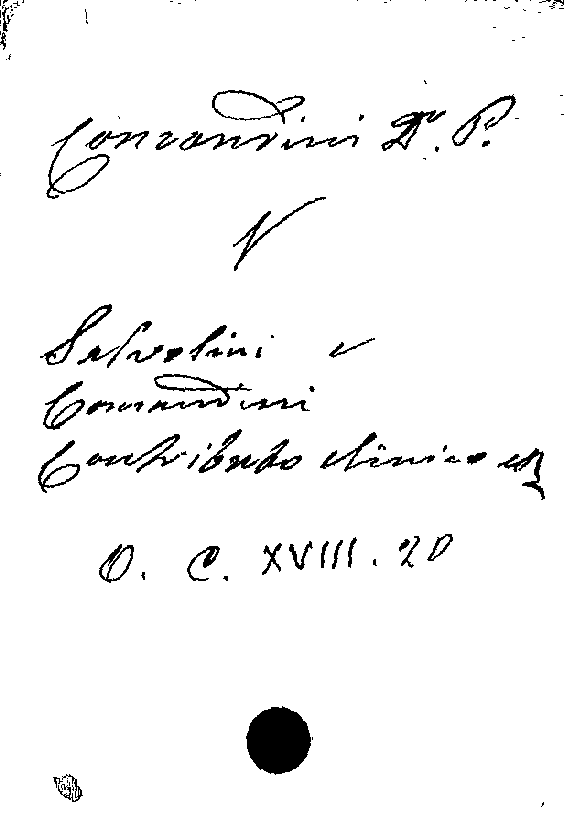 Comandini Dr. P.
V
Salvolini v
Comandini
Contributo clinico
O. C. XVIII. 20